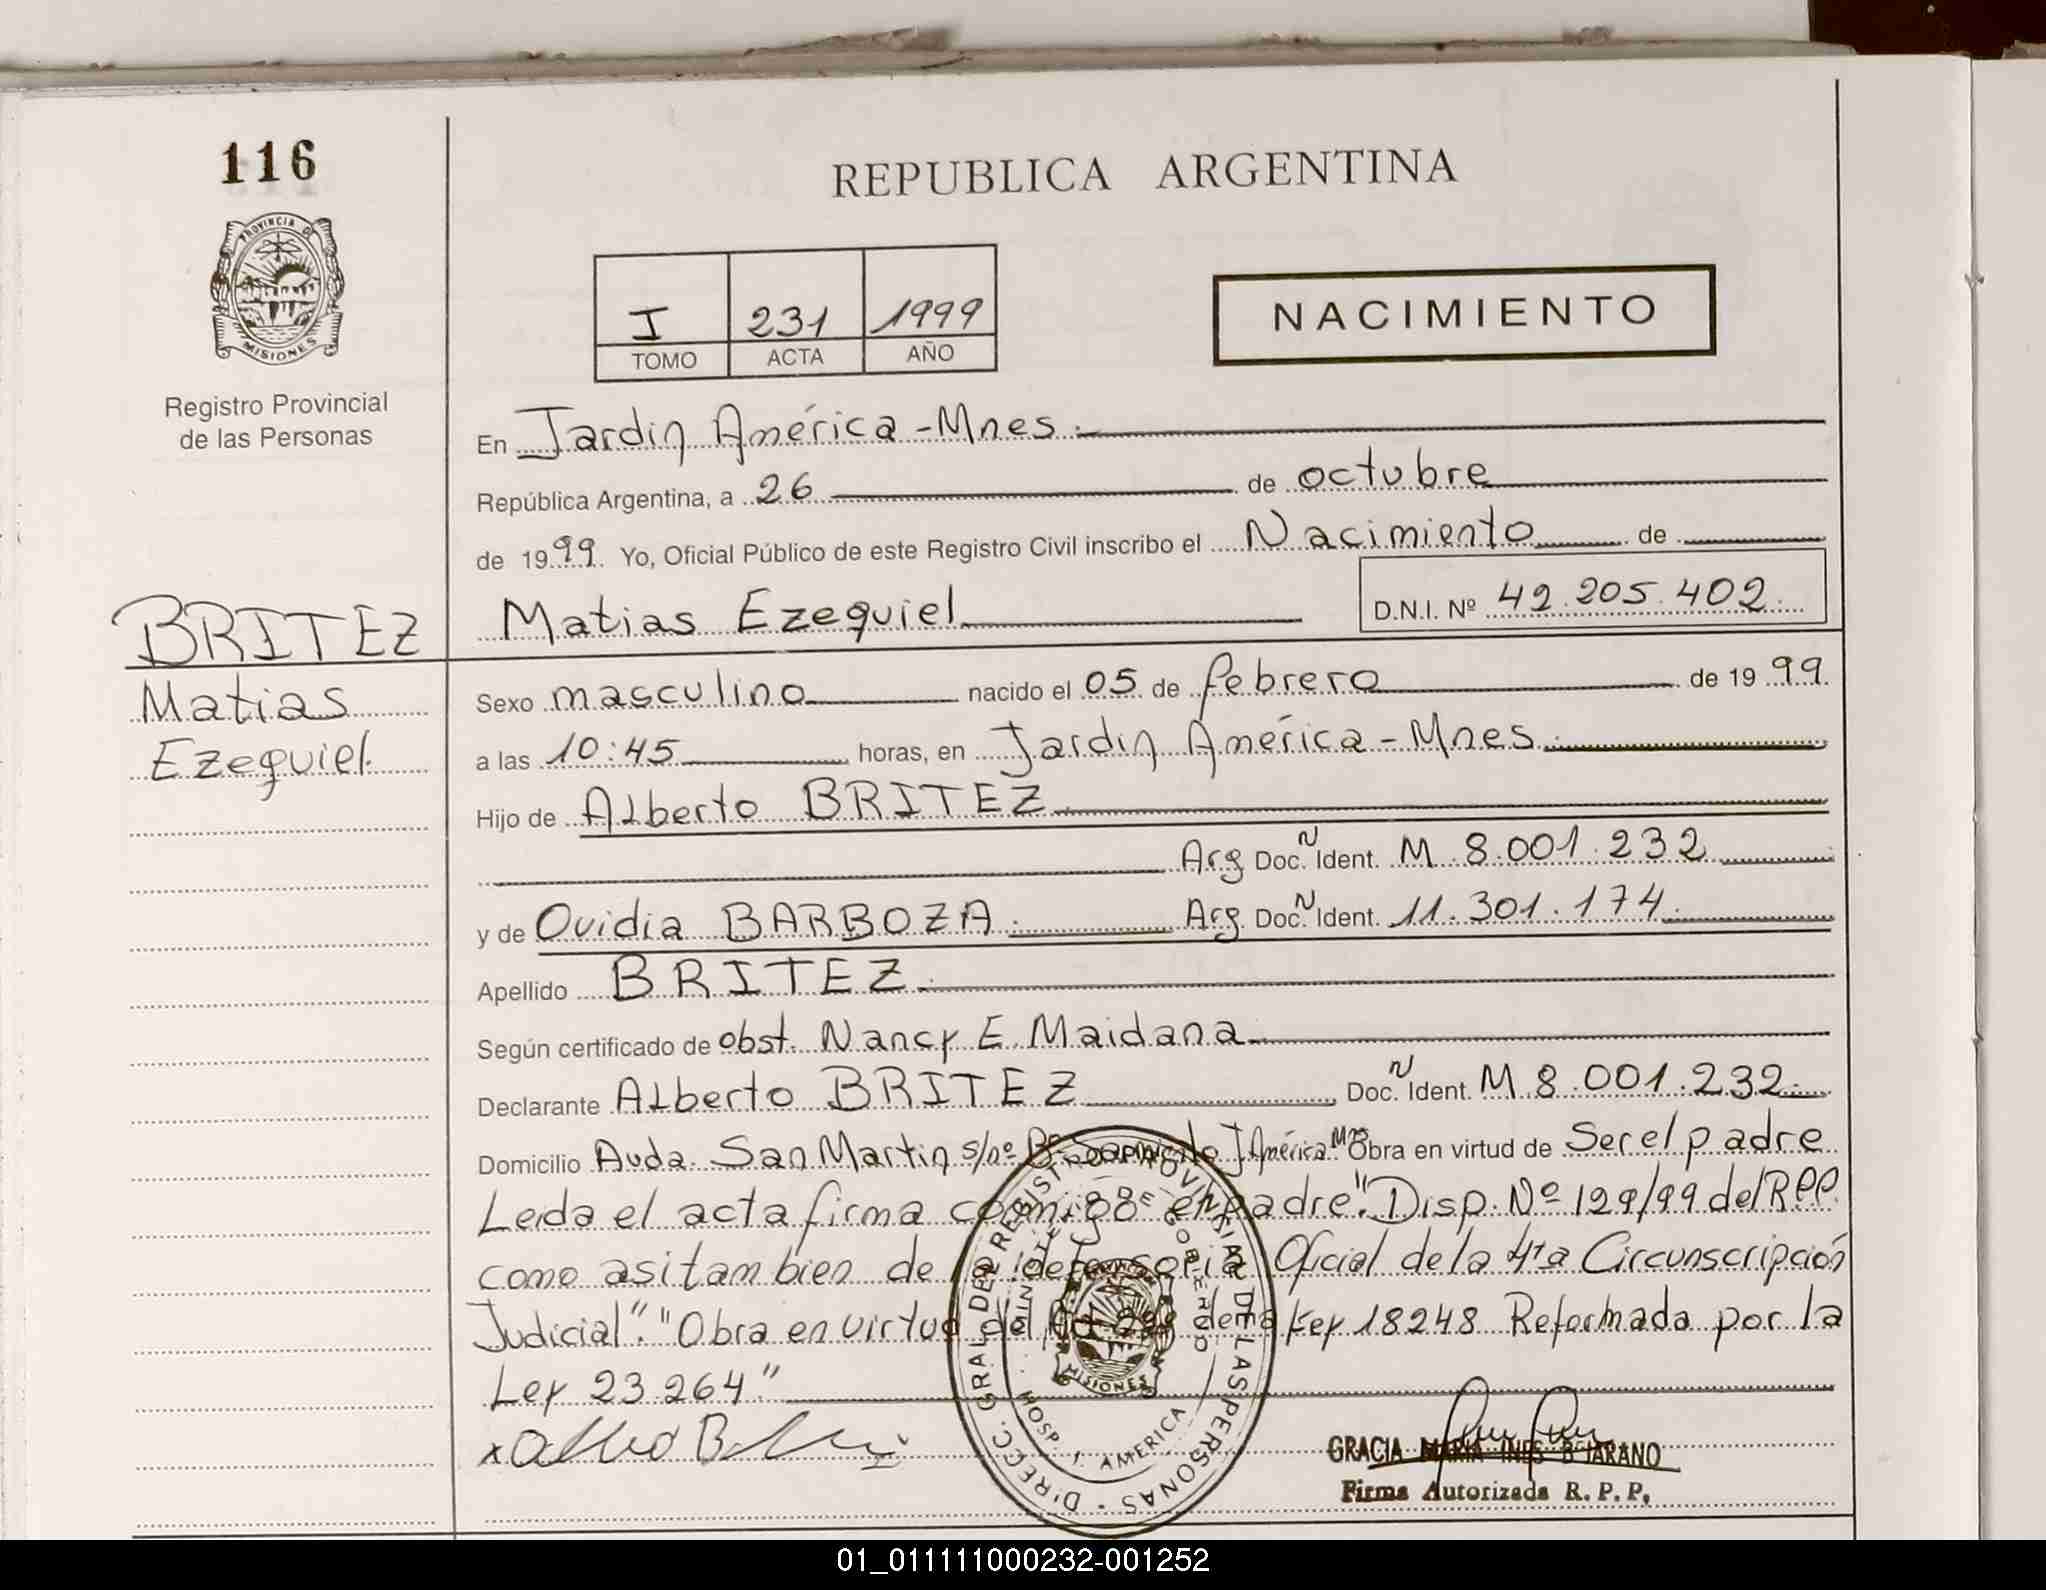 116
REPUBLICA ARGENTINA
PROVINCIA DE
MISIONES
Registro Provincial
de las Personas
I 231 1999
TOMO ACTA AÑO
NACIMIENTO
En Jardin América - Mnes.
República Argentina, a 26 de octubre
de 1999. Yo, Oficial Público de este Registro Civil inscribo el Nacimiento de
BRITEZ
Matias Ezequiel
D.N.I. Nº 42.205.402
Matias
Ezequiel.
Sexo masculino nacido el 05 de febrero de 1999.
a las 10:45 horas, en Jardin América - Mnes.
Hijo de Alberto BRITEZ
Arg Doc. N Ident. M 8.001.232
y de Ovidia BARBOZA. Arg. Doc. N Ident. 11.301.174.
Apellido BRITEZ.
Según certificado de obst. Nancy E. Maidana
Declarante Alberto BRITEZ Doc. N Ident. M.8.001.232.
Domicilio Avda. San Martin s/nº Bº Sarmiento J. América Mnes Obra en virtud de Ser el padre
Leida el acta firma conmigo el padre". Disp. Nº 129/99 del R.P.P.
como asi tambien de la defensoria Oficial de la 4ta Circunscripción
Judicial". "Obra en virtud del de la Ley 18248 Reformada por la
Ley 23.264"
DIRECC. GRAL DEL REGISTRO PROVINCIAL DE LAS PERSONAS
MINISTERIO DE GOBIERNO
HOSP. J. AMERICA
MISIONES
GRACIA MARIA INES BEJARANO
Firma Autorizada R. P. P.
01_011111000232-001252